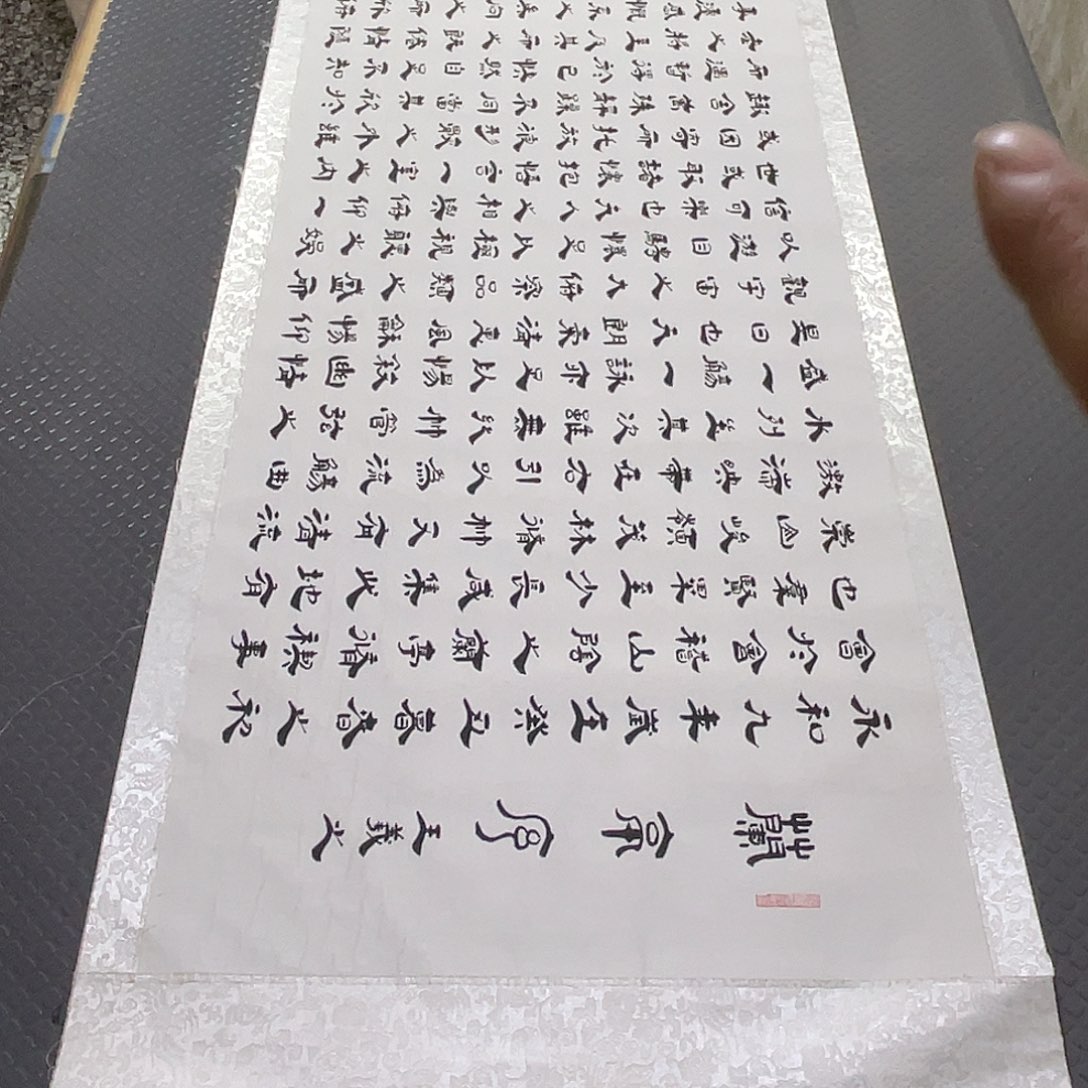 蘭亭序 王羲之
永和九年歲在癸丑暮春之初
會於會稽山陰之蘭亭脩禊事
也羣賢畢至少長咸集此地有
崇山峻嶺茂林脩竹又有清流
激湍映帶左右引以為流觴曲
水列坐其次雖無絲竹管弦之
盛一觴一詠亦足以暢敘幽情
是日也天朗氣清惠風龢暢仰
觀宇宙之大俯察品類之盛所
以遊目騁懷足以極視聽之娛
信可樂也夫人之相與俯仰一
世或取諸懷抱悟言一室之內
或因寄所託放浪形骸之外雖
趣舍萬殊靜躁不同當其欣於
所遇暫得於己快然自足不知
老之將至及其所之既倦情隨